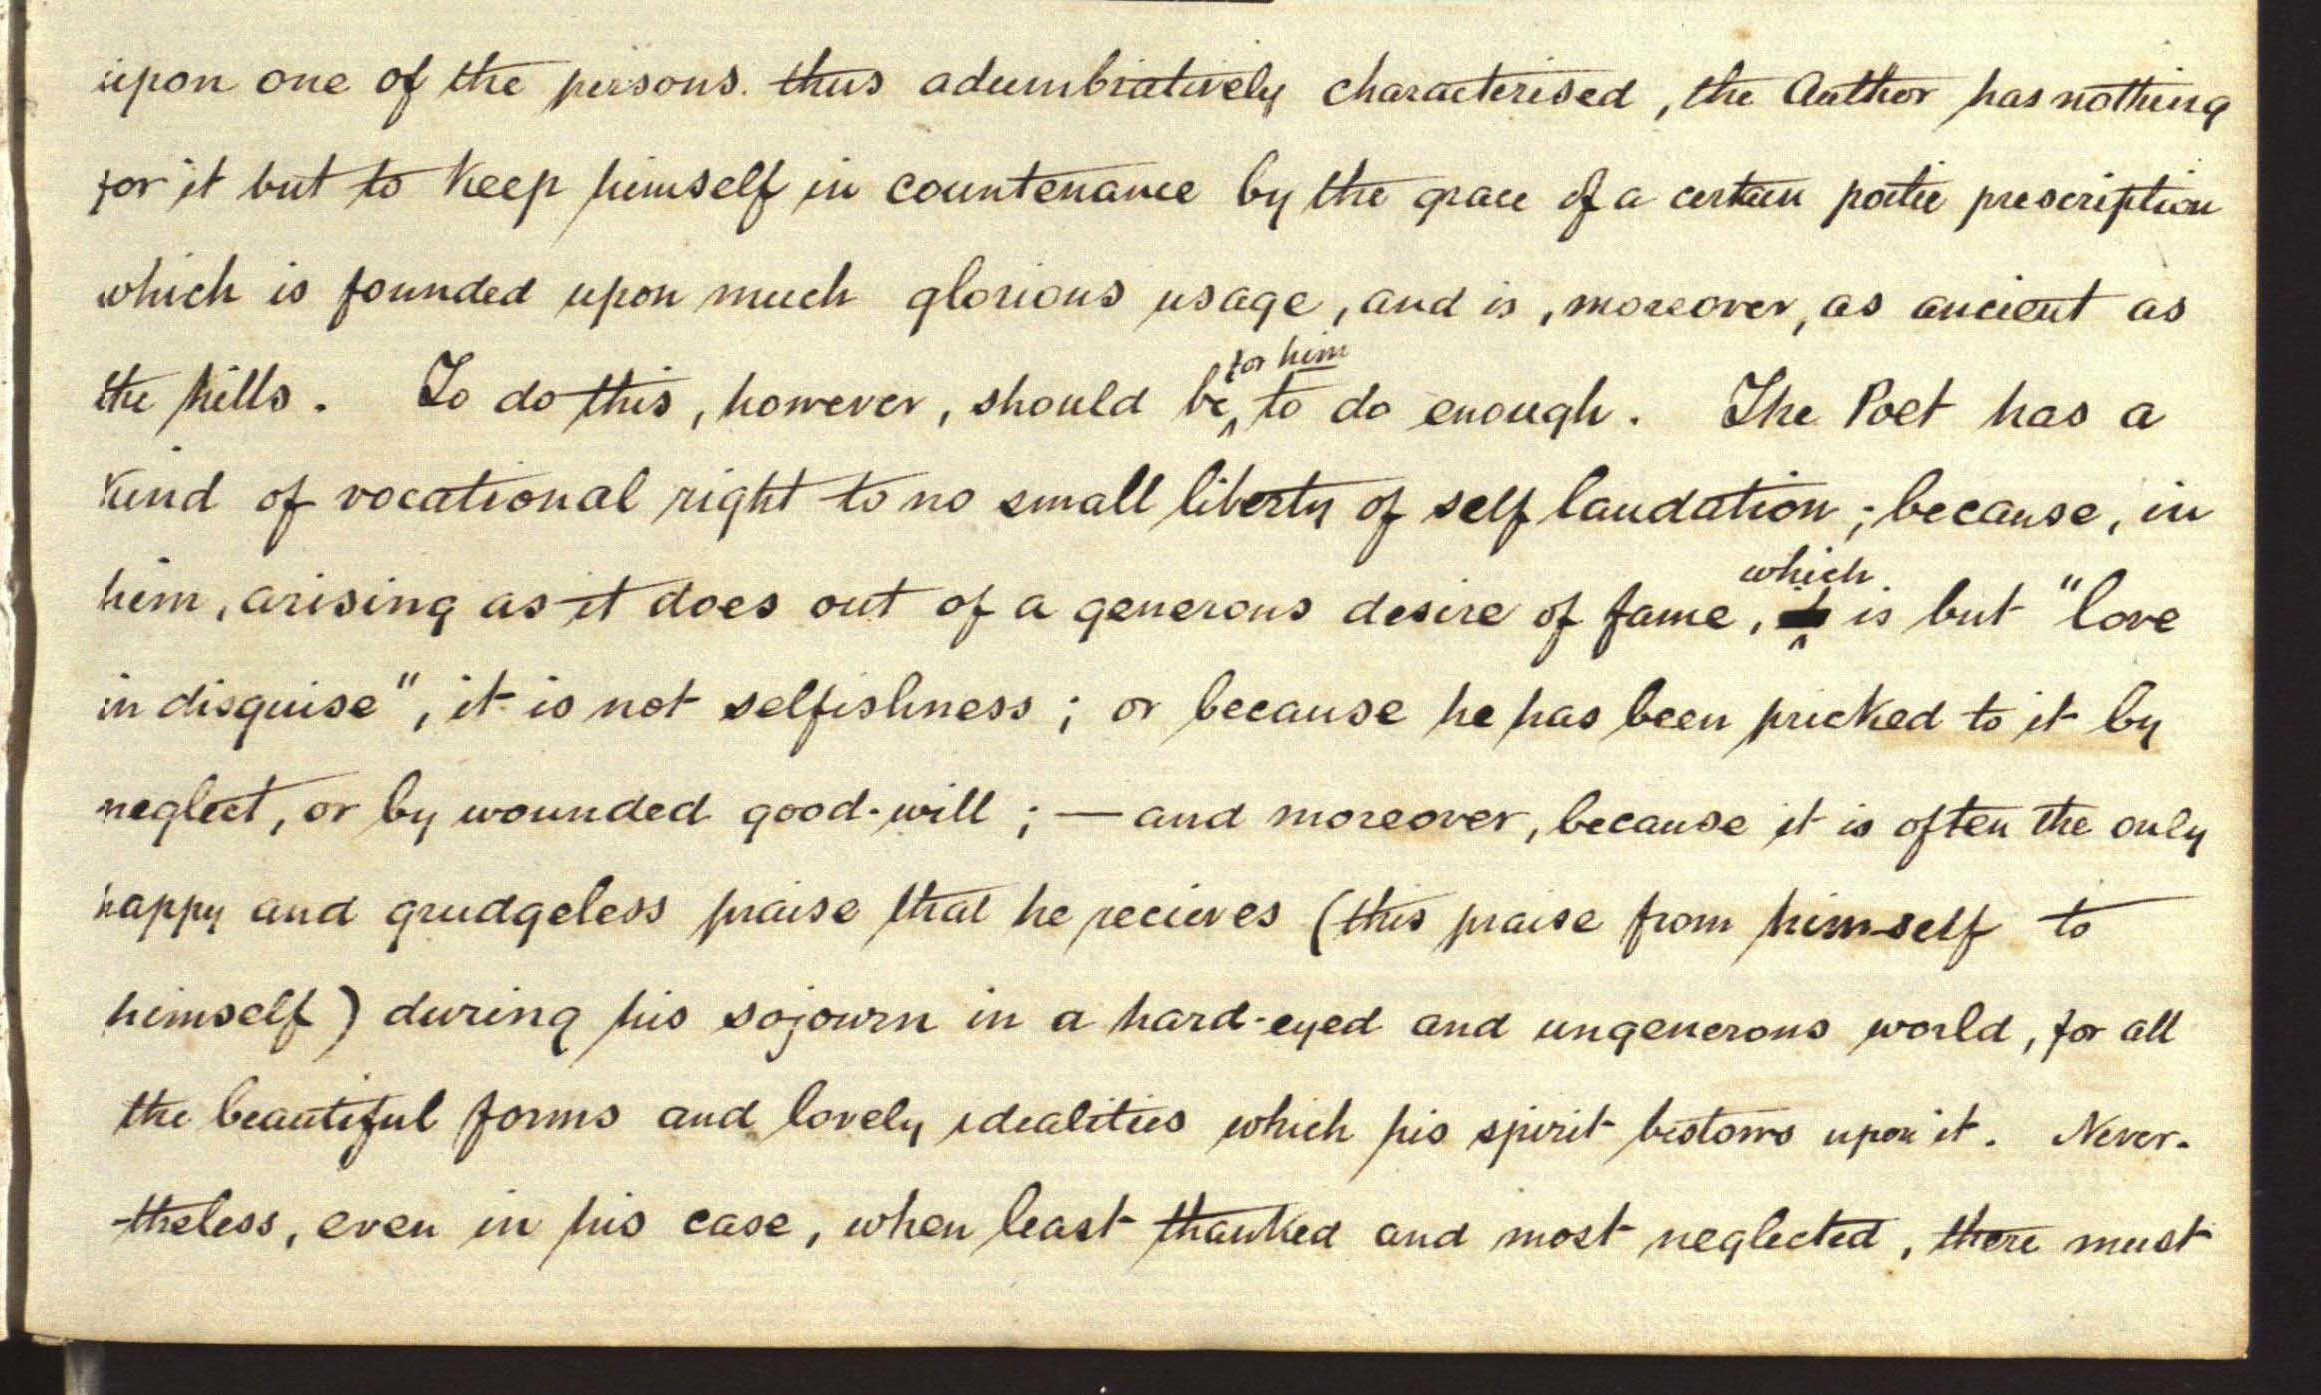 upon one of the persons thus adumbratively characterised, the Author has nothing
for it but to keep himself in countenance by the grace of a certain poetic prescription
which is founded upon much glorious usage, and is, moreover, as ancient as
the hills. To do this, however, should be for him to do enough. The Poet has a
kind of vocational right to no small liberty of self laudation; because, in
him, arising as it does out of a generous desire of fame, which is but "love
in disguise", it is not selfishness; or because he has been pricked to it by
neglect, or by wounded good-will; — and moreover, because it is often the only
happy and grudgeless praise that he recieves (this praise from himself to
himself) during his sojourn in a hard-eyed and ungenerous world, for all
the beautiful forms and lovely idealities which his spirit bestows upon it. Never-
-theless, even in his case, when least thanked and most neglected, there must